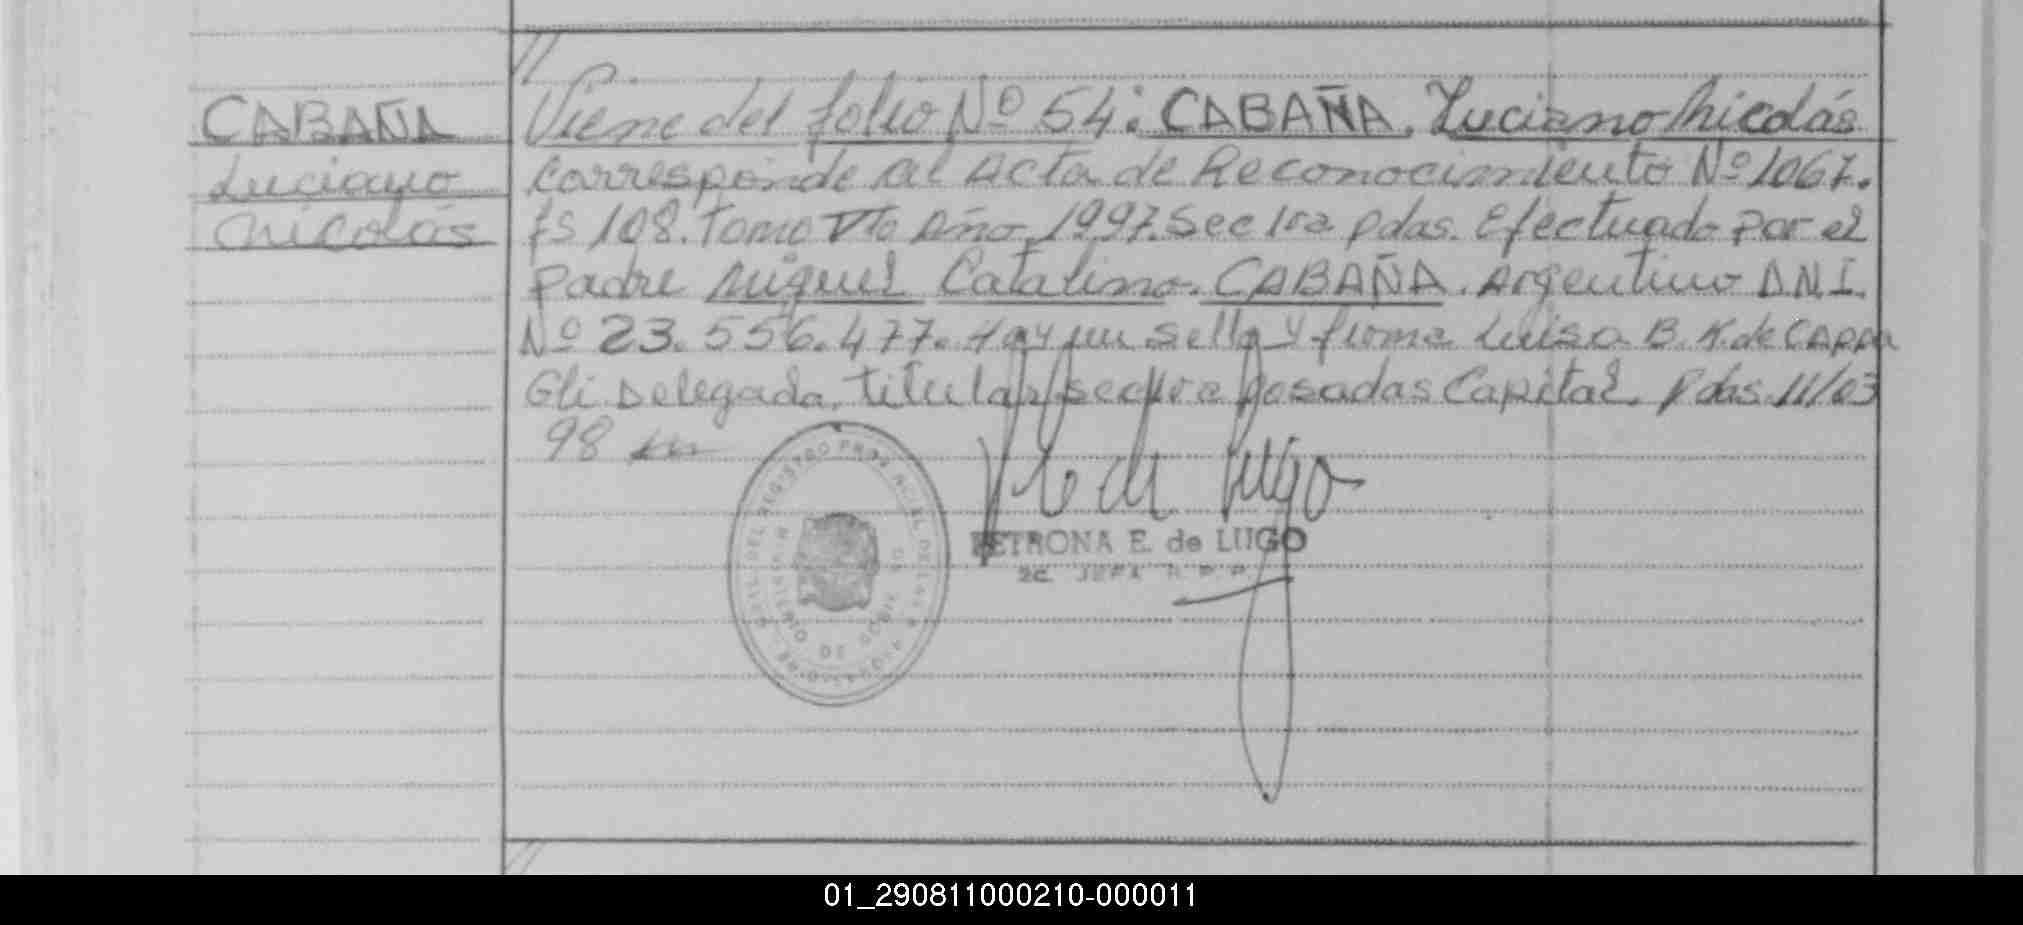 CABAÑA
Luciano
Nicolás
Viene del folio Nº 54: CABAÑA. Luciano Nicolás
Corresponde al Acta de Reconocimiento Nº 1067.
fs 108. Tomo Vto Año 1997. Sec 1ra Pdas. Efectuado por el
padre Miguel Catalino CABAÑA. Argentino D.N.I.
Nº 23.556.477. Hay un sello y firma Luisa B. K. de CAPPA
Gli Delegada titular Posadas Capital. Pdas 11/03
98
PETRONA E. de LUGO
2c JEFA R P P
01_290811000210-000011